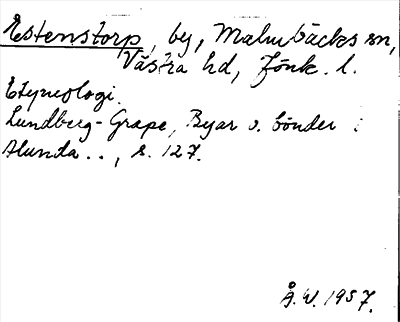 Estenstorp, by, Malmbäcks sn,
Västra hd, Jönk. l.
Etymologi.
Lundberg-Grape, Byar o. bönder i
Alunda .., s. 127.
Å.W. 1957.